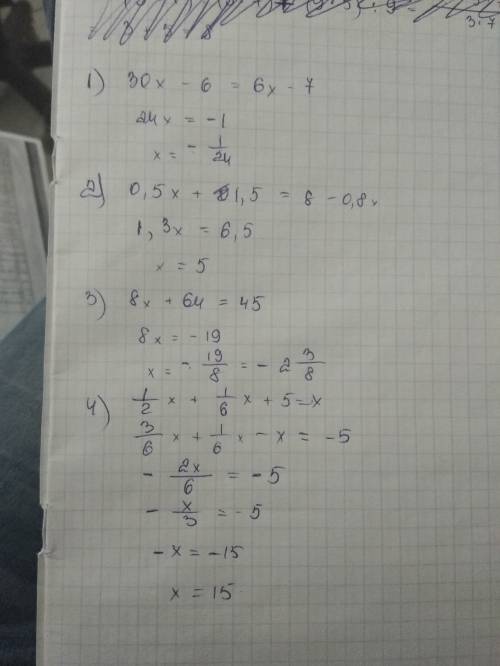 3:7
1) 30x - 6 = 6x - 7
24x = -1
x = - 1/24
2) 0,5x + 1,5 = 8 - 0,8x
1,3x = 6,5
x = 5
3) 8x + 64 = 45
8x = -19
x = - 19/8 = - 2 3/8
4) 1/2 x + 1/6 x + 5 = x
3/6 x + 1/6 x - x = -5
- 2x/6 = -5
- x/3 = -5
-x = -15
x = 15